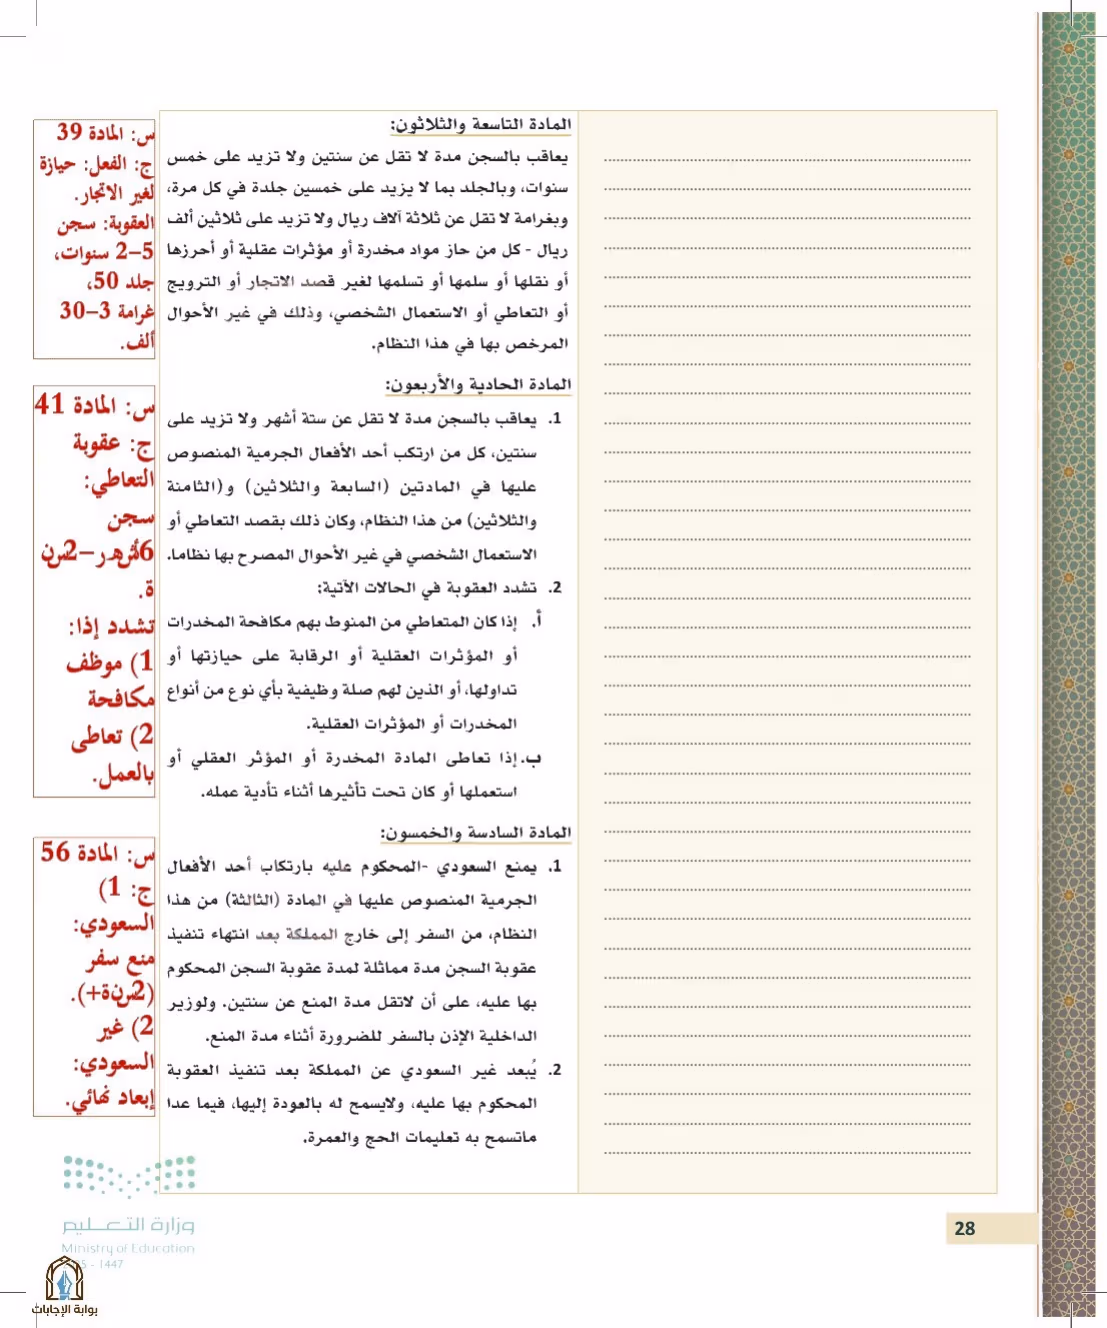 المادة التاسعة والثلاثون:
يعاقب بالسجن مدة لا تقل عن سنتين ولا تزيد على خمس
سنوات، وبالجلد بما لا يزيد على خمسين جلدة في كل مرة،
وبغرامة لا تقل عن ثلاثة آلاف ريال ولا تزيد على ثلاثين ألف
ريال - كل من حاز مواد مخدرة أو مؤثرات عقلية أو أحرزها
أو نقلها أو سلمها أو تسلمها لغير قصد الاتجار أو الترويج
أو التعاطي أو الاستعمال الشخصي، وذلك في غير الأحوال
المرخص بها في هذا النظام.
المادة الحادية والأربعون:
1. يعاقب بالسجن مدة لا تقل عن ستة أشهر ولا تزيد على
سنتين، كل من ارتكب أحد الأفعال الجرمية المنصوص
عليها في المادتين (السابعة والثلاثين) و(الثامنة
والثلاثين) من هذا النظام، وكان ذلك بقصد التعاطي أو
الاستعمال الشخصي في غير الأحوال المصرح بها نظاما.
2. تشدد العقوبة في الحالات الآتية:
أ. إذا كان المتعاطي من المنوط بهم مكافحة المخدرات
أو المؤثرات العقلية أو الرقابة على حيازتها أو
تداولها، أو الذين لهم صلة وظيفية بأي نوع من أنواع
المخدرات أو المؤثرات العقلية.
ب. إذا تعاطى المادة المخدرة أو المؤثر العقلي أو
استعملها أو كان تحت تأثيرها أثناء تأدية عمله.
المادة السادسة والخمسون:
1. يمنع السعودي -المحكوم عليه بارتكاب أحد الأفعال
الجرمية المنصوص عليها في المادة (الثالثة) من هذا
النظام، من السفر إلى خارج المملكة بعد انتهاء تنفيذ
عقوبة السجن مدة مماثلة لمدة عقوبة السجن المحكوم
بها عليه، على أن لاتقل مدة المنع عن سنتين. ولوزير
الداخلية الإذن بالسفر للضرورة أثناء مدة المنع.
2. يُبعد غير السعودي عن المملكة بعد تنفيذ العقوبة
المحكوم بها عليه، ولايسمح له بالعودة إليها، فيما عدا
ماتسمح به تعليمات الحج والعمرة.
س: المادة 39
ج: الفعل: حيازة
لغير الاتجار.
العقوبة: سجن
2–5 سنوات،
جلد 50،
غرامة 3–30
ألف.
س: المادة 41
ج: عقوبة
التعاطي:
سجن
6أشهر–2سن
ة.
تشدد إذا:
1) موظف
مكافحة
2) تعاطى
بالعمل.
س: المادة 56
ج: 1)
السعودي:
منع سفر
(2سنة+).
2) غير
السعودي:
إبعاد نهائي.
وزارة التعليم
Ministry of Education
- 1447
بوابة الإجابات
28